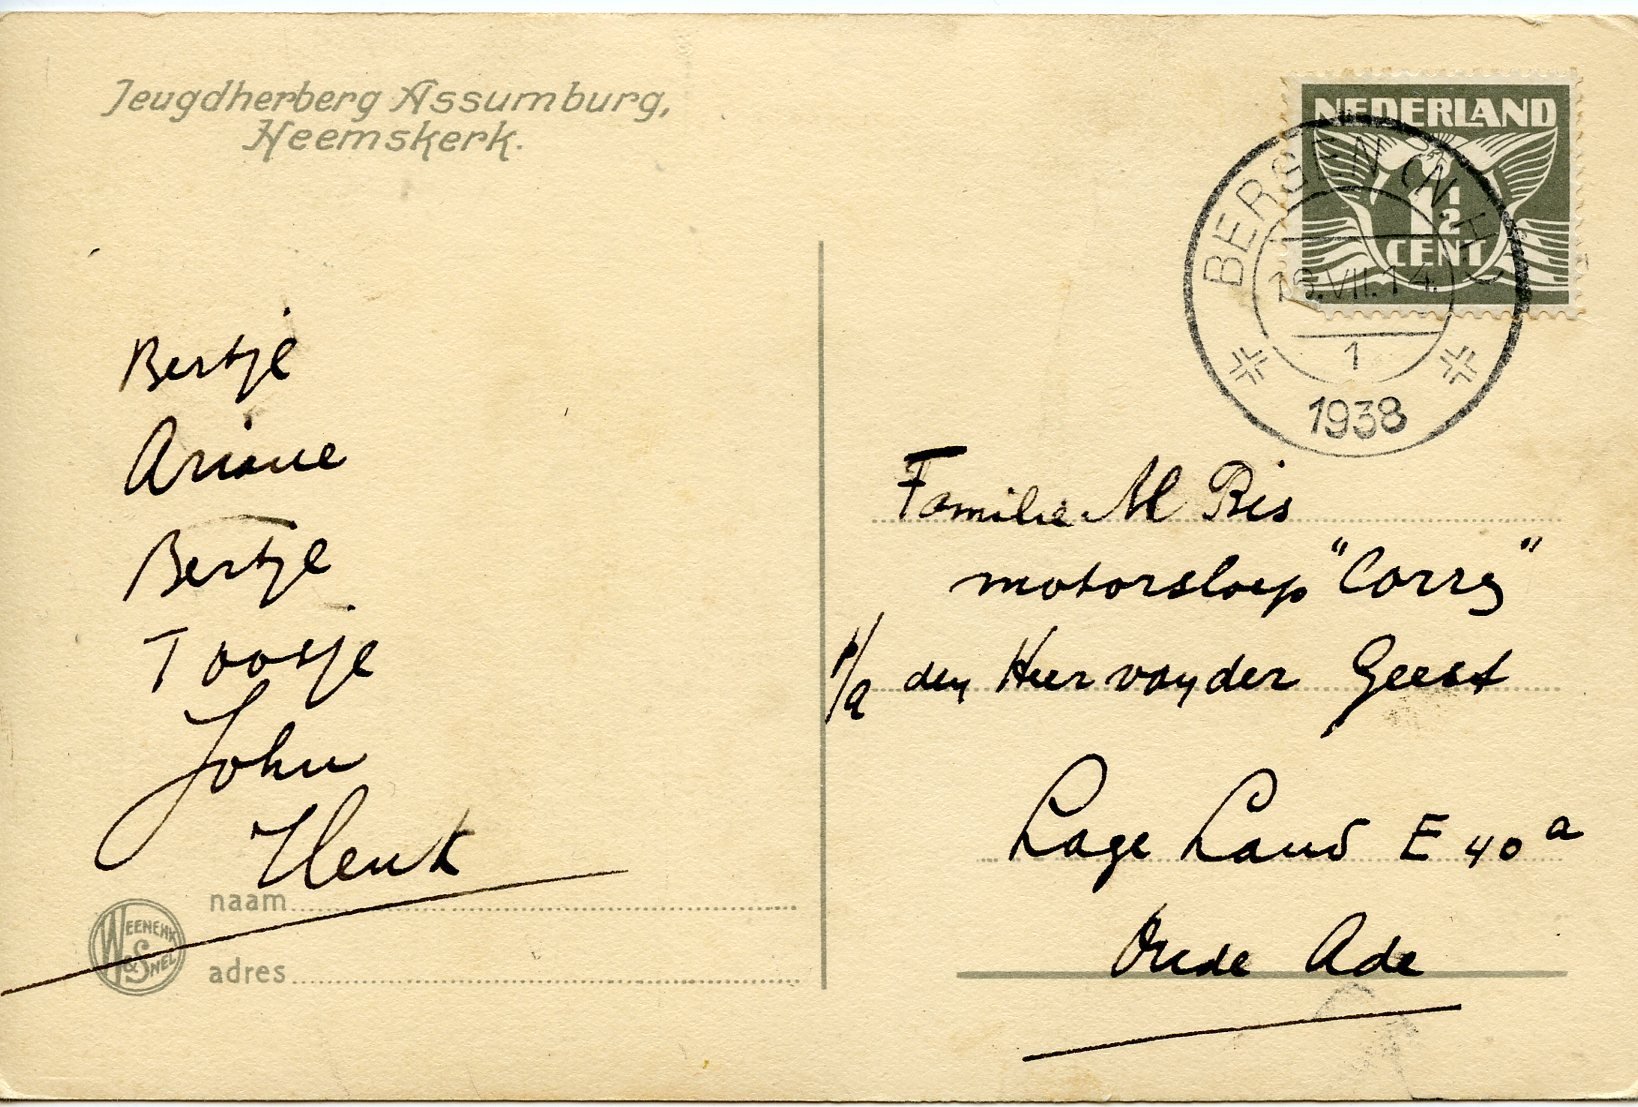 Jeugdherberg Assumburg,
Heemskerk.
NEDERLAND
1½
CENT
BERGEN (N.H.)
16.VII.14.
1
1938
Bertje
Ariane
Bertje
Toosje
John
Henk
Familie M Bis
motorsloep "Corry"
p/a den Heer van der Geest
Lage Land E 40 a
Oude Ade
naam
adres
WEENENK
& SNEL